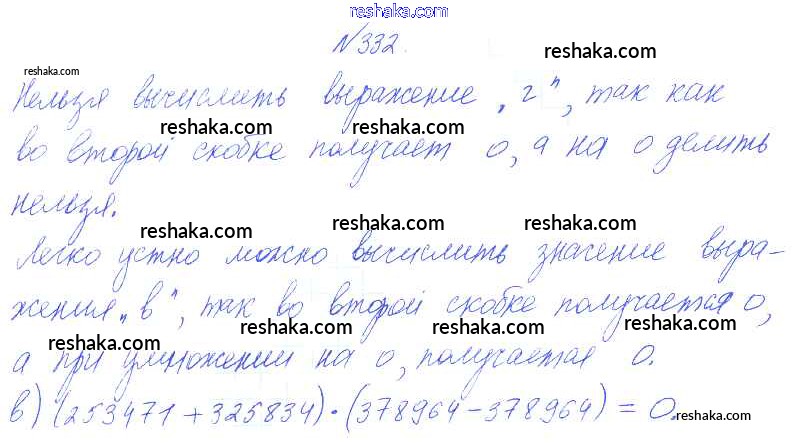 reshaka.com
№332.
reshaka.com
reshaka.com
Нельзя вычислить выражение „г", так как
reshaka.com
reshaka.com
во второй скобке получает 0, а на 0 делить
нельзя.
reshaka.com
reshaka.com
Легко устно можно вычислить значение выра-
reshaka.com
reshaka.com
жения „в", так во второй скобке получается 0,
reshaka.com
reshaka.com
а при умножении на 0, получается 0.
reshaka.com
reshaka.com
в) (253471+325834)·(378964-378964) = 0.
reshaka.com
reshaka.com